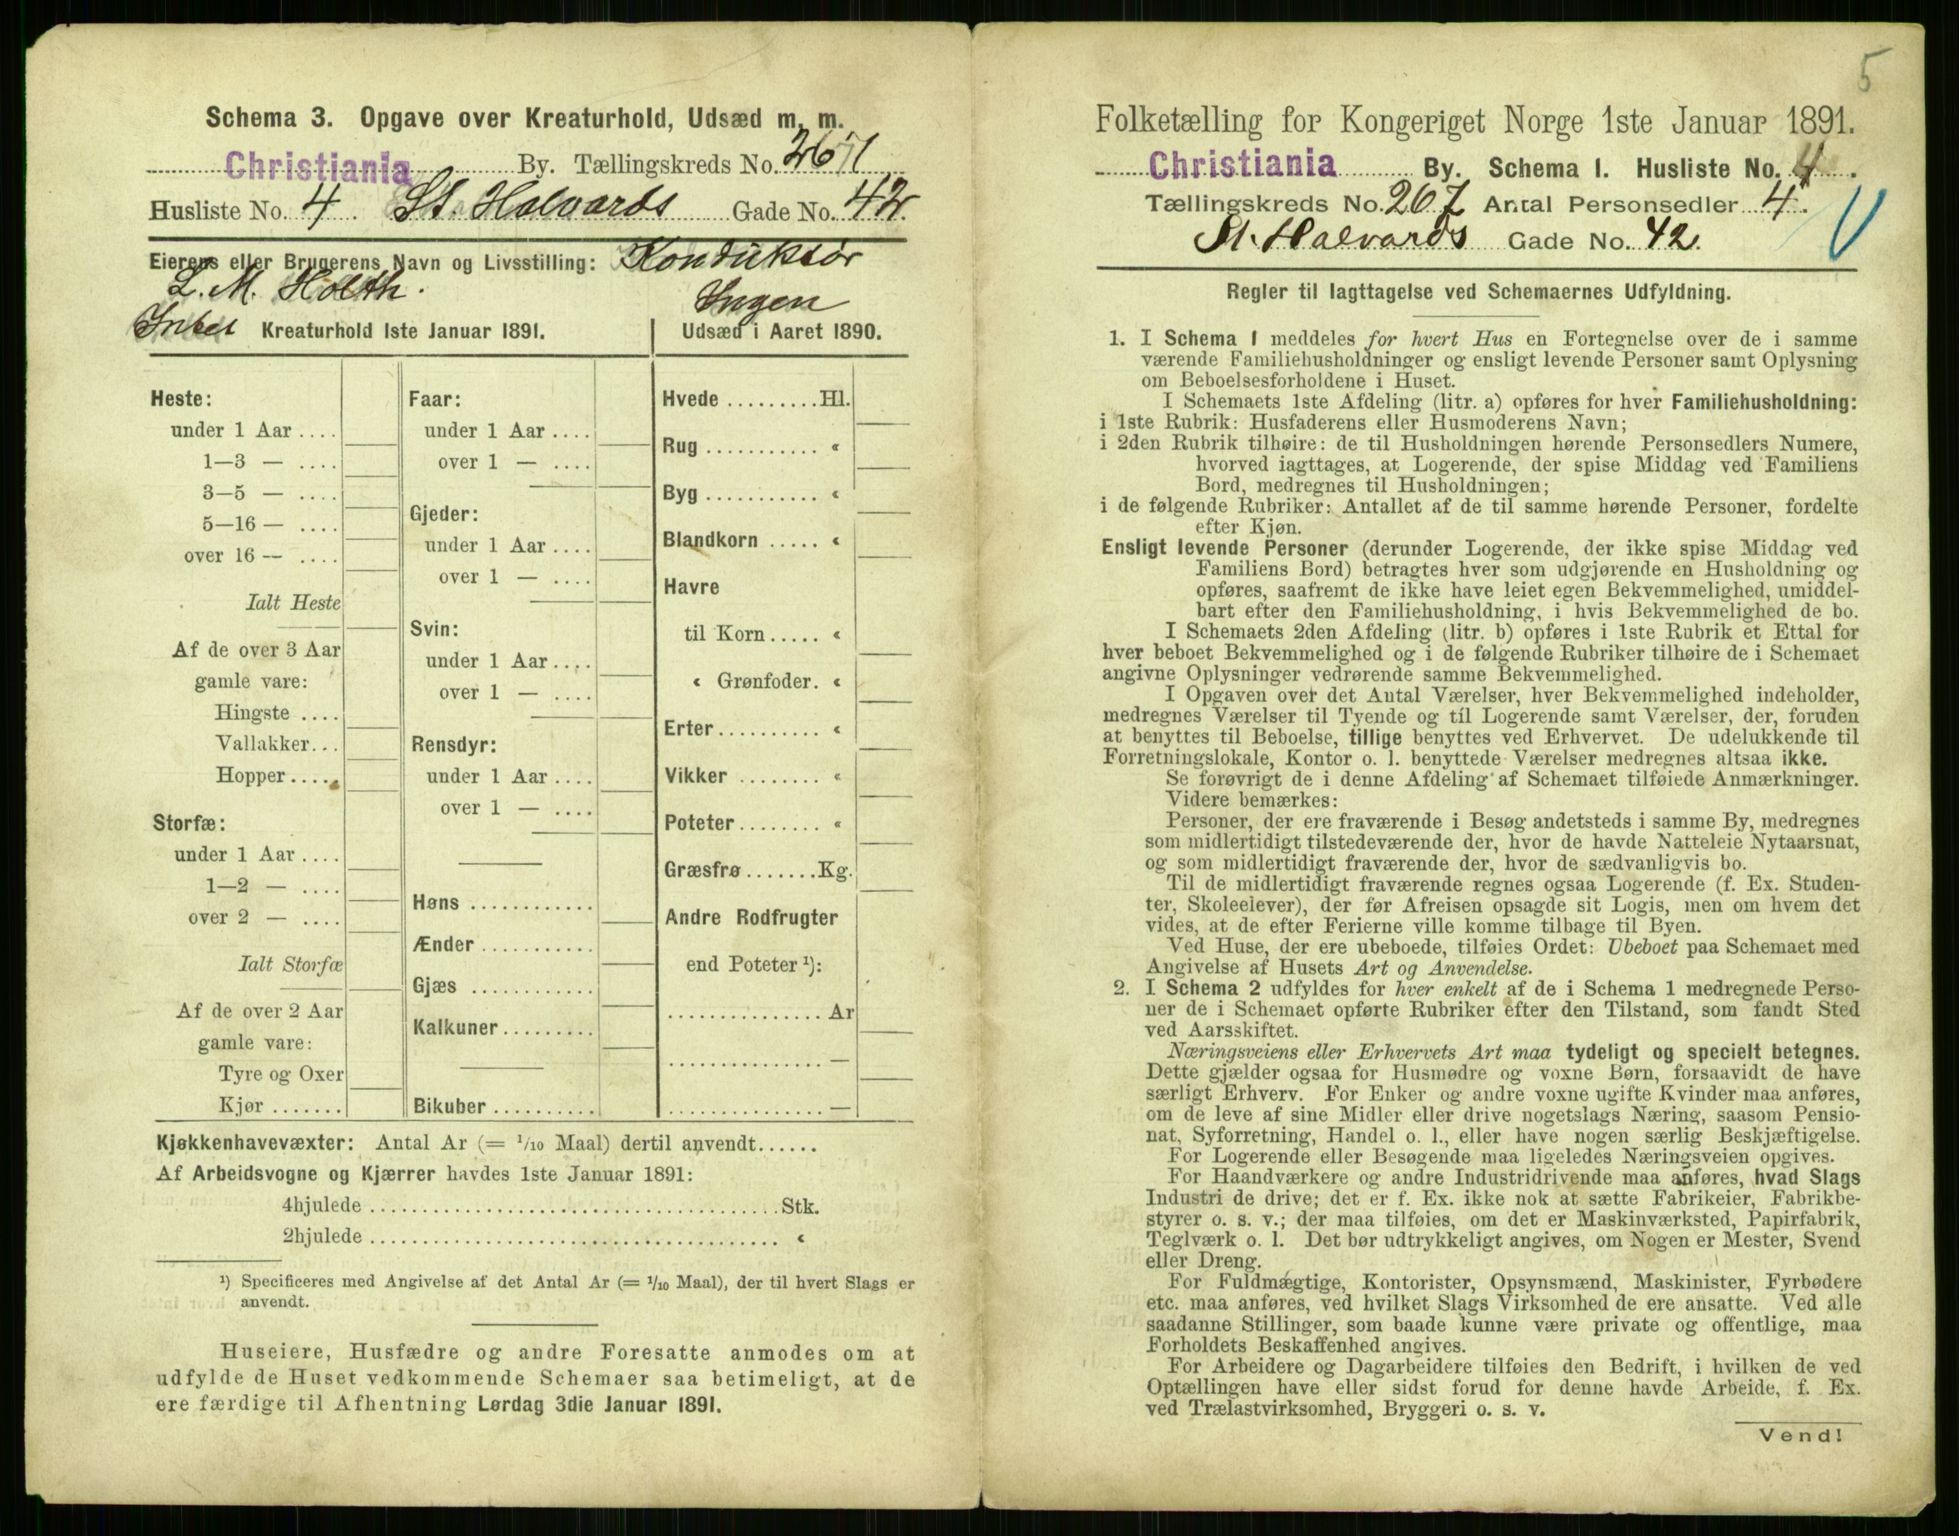 Schema 3. Opgave over Kreaturhold, Udsæd m. m.
Christiania By. Tællingskreds No. 267
Husliste No. 4. St. Halvards Gade No. 42.
Eierens eller Brugerens Navn og Livsstilling: Konduktør
L. M. Holth.
Intet Kreaturhold 1ste Januar 1891.
Ingen
Udsæd i Aaret 1890.
Heste:
under 1 Aar ....
1—3 — ....
3—5 — ....
5—16 — ....
over 16 — ....
Ialt Heste
Af de over 3 Aar
gamle vare:
Hingste ....
Vallakker...
Hopper .....
Storfæ:
under 1 Aar ....
1—2 — ....
over 2 — ....
Ialt Storfæ
Af de over 2 Aar
gamle vare:
Tyre og Oxer
Kjør .......
Faar:
under 1 Aar ....
over 1 — ....
Gjeder:
under 1 Aar ....
over 1 — ....
Svin:
under 1 Aar ....
over 1 — ....
Rensdyr:
under 1 Aar ....
over 1 — ....
Høns ............
Ænder ...........
Gjæs ............
Kalkuner.........
Bikuber ..........
Hvede .........Hl.
Rug ........... «
Byg ........... «
Blandkorn ..... «
Havre
til Korn ..... «
« Grønfoder. «
Erter.......... «
Vikker ........ «
Poteter........ «
Græsfrø.......Kg.
Andre Rodfrugter
end Poteter ¹):
............... Ar
............... —
............... —
Kjøkkenhavevæxter: Antal Ar (= 1/10 Maal) dertil anvendt......
Af Arbeidsvogne og Kjærrer havdes 1ste Januar 1891:
4hjulede ........................................Stk.
2hjulede ........................................ «
¹) Specificeres med Angivelse af det Antal Ar (= 1/10 Maal), der til hvert Slags er
anvendt.
Huseiere, Husfædre og andre Foresatte anmodes om at
udfylde de Huset vedkommende Schemaer saa betimeligt, at de
ere færdige til Afhentning Lørdag 3die Januar 1891.
5
Folketælling for Kongeriget Norge 1ste Januar 1891.
Christiania By. Schema 1. Husliste No. 4.
Tællingskreds No. 267 Antal Personsedler 4.
St. Halvards Gade No. 42.
Regler til Iagttagelse ved Schemaernes Udfyldning.
1. I Schema 1 meddeles for hvert Hus en Fortegnelse over de i samme
værende Familiehusholdninger og ensligt levende Personer samt Oplysning
om Beboelsesforholdene i Huset.
I Schemaets 1ste Afdeling (litr. a) opføres for hver Familiehusholdning:
i 1ste Rubrik: Husfaderens eller Husmoderens Navn;
i 2den Rubrik tilhøire: de til Husholdningen hørende Personsedlers Numere,
hvorved iagttages, at Logerende, der spise Middag ved Familiens
Bord, medregnes til Husholdningen;
i de følgende Rubriker: Antallet af de til samme hørende Personer, fordelte
efter Kjøn.
Ensligt levende Personer (derunder Logerende, der ikke spise Middag ved
Familiens Bord) betragtes hver som udgjørende en Husholdning og
opføres, saafremt de ikke have leiet egen Bekvemmelighed, umiddel-
bart efter den Familiehusholdning, i hvis Bekvemmelighed de bo.
I Schemaets 2den Afdeling (litr. b) opføres i 1ste Rubrik et Ettal for
hver beboet Bekvemmelighed og i de følgende Rubriker tilhøire de i Schemaet
angivne Oplysninger vedrørende samme Bekvemmelighed.
I Opgaven over det Antal Værelser, hver Bekvemmelighed indeholder,
medregnes Værelser til Tyende og til Logerende samt Værelser, der, foruden
at benyttes til Beboelse, tillige benyttes ved Erhvervet. De udelukkende til
Forretningslokale, Kontor o. l. benyttede Værelser medregnes altsaa ikke.
Se forøvrigt de i denne Afdeling af Schemaet tilføiede Anmærkninger.
Videre bemærkes:
Personer, der ere fraværende i Besøg andetsteds i samme By, medregnes
som midlertidigt tilstedeværende der, hvor de havde Natteleie Nytaarsnat,
og som midlertidigt fraværende der, hvor de sædvanligvis bo.
Til de midlertidigt fraværende regnes ogsaa Logerende (f. Ex. Studen-
ter, Skoleelever), der før Afreisen opsagde sit Logis, men om hvem det
vides, at de efter Ferierne ville komme tilbage til Byen.
Ved Huse, der ere ubeboede, tilføies Ordet: Ubeboet paa Schemaet med
Angivelse af Husets Art og Anvendelse.
2. I Schema 2 udfyldes for hver enkelt af de i Schema 1 medregnede Perso-
ner de i Schemaet opførte Rubriker efter den Tilstand, som fandt Sted
ved Aarsskiftet.
Næringsveiens eller Erhvervets Art maa tydeligt og specielt betegnes.
Dette gjælder ogsaa for Husmødre og voxne Børn, forsaavidt de have
særligt Erhverv. For Enker og andre voxne ugifte Kvinder maa anføres,
om de leve af sine Midler eller drive nogetslags Næring, saasom Pensio-
nat, Syforretning, Handel o. l., eller have nogen særlig Beskjæftigelse.
For Logerende eller Besøgende maa ligeledes Næringsveien opgives.
For Haandværkere og andre Industridrivende maa anføres, hvad Slags
Industri de drive; det er f. Ex. ikke nok at sætte Fabrikeier, Fabrikbe-
styrer o. s. v.; der maa tilføies, om det er Maskinværksted, Papirfabrik,
Teglværk o. l. Det bør udtrykkeligt angives, om Nogen er Mester, Svend
eller Dreng.
For Fuldmægtige, Kontorister, Opsynsmænd, Maskinister, Fyrbødere
etc. maa anføres, ved hvilket Slags Virksomhed de ere ansatte. Ved alle
saadanne Stillinger, som baade kunne være private og offentlige, maa
Forholdets Beskaffenhed angives.
For Arbeidere og Dagarbeidere tilføies den Bedrift, i hvilken de ved
Optællingen have eller sidst forud for denne havde Arbeide, f. Ex.
ved Trælastvirksomhed, Bryggeri o. s. v.
Vend!